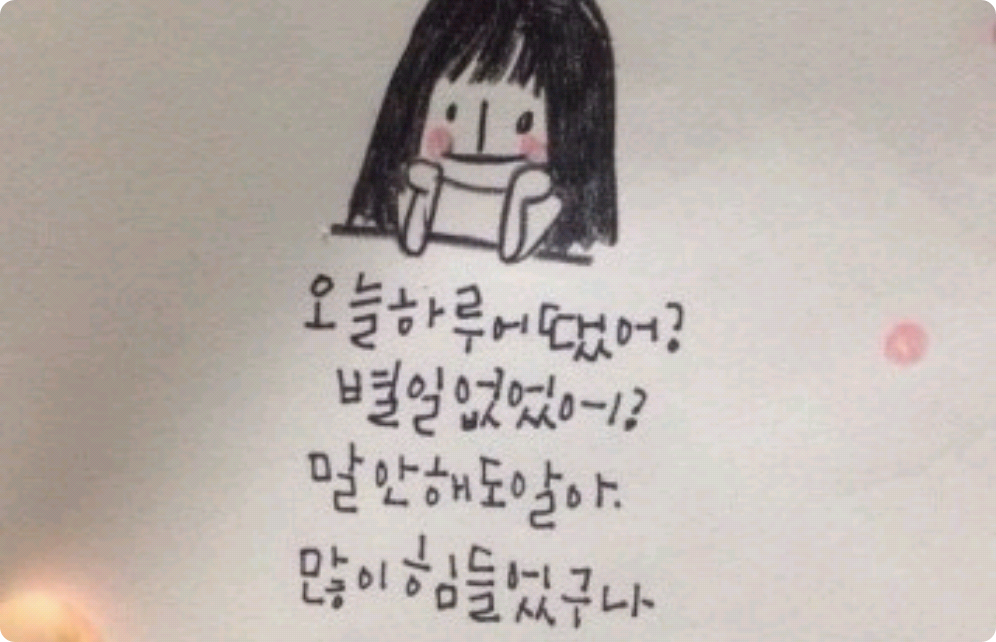 오늘하루에땠어?
별일없었어?
말안해도알아.
많이힘들었구나